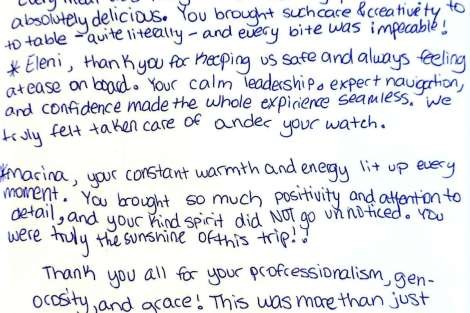 absolutely delicious. You brought such care & creativity to
to table - quite literally - and every bite was impecable!
* Eleni, thank you for keeping us safe and always feeling
at ease on board. Your calm leadership, expert navigation,
and confidence made the whole expirience seamless. We
truly felt taken care of under your watch.
*Marina, your constant warmth and energy lit up every
moment. You brought so much positivity and attention to
detail, and your kind spirit did NOT go unnoticed. You
were truly the sunshine of this trip!!
Thank you all for your profcessionalism, gen-
ocosity, and grace! This was more than just